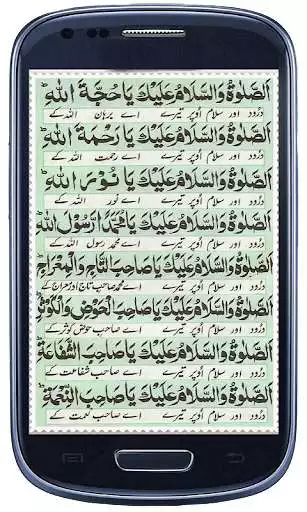 SAMSUNG
اَلصَّلٰوةُ وَالسَّلَامُ عَلَيْكَ يَا حُجَّةَ اللهِ
درُود اور سلام اُوپر تیرے اے برہان اللہ کے
اَلصَّلٰوةُ وَالسَّلَامُ عَلَيْكَ يَا رَحْمَةَ اللهِ
درُود اور سلام اُوپر تیرے اے رحمت اللہ کے
اَلصَّلٰوةُ وَالسَّلَامُ عَلَيْكَ يَا نُوْرَ اللهِ
درُود اور سلام اُوپر تیرے اے نور اللہ کے
اَلصَّلٰوةُ وَالسَّلَامُ عَلَيْكَ يَا مُحَمَّدُ رَّسُوْلَ اللهِ
درُود اور سلام اُوپر تیرے اے محمد رسول اللہ کے
اَلصَّلٰوةُ وَالسَّلَامُ عَلَيْكَ يَا صَاحِبَ التَّاجِ وَالْمِعْرَاجِ
درُود اور سلام اُوپر تیرے اے محمد صاحب تاج اور معراج کے
اَلصَّلٰوةُ وَالسَّلَامُ عَلَيْكَ يَا صَاحِبَ الْحَوْضِ وَالْكَوْثَرِ
درُود اور سلام اُوپر تیرے اے صاحب حوض کوثر کے
اَلصَّلٰوةُ وَالسَّلَامُ عَلَيْكَ يَا صَاحِبَ الشَّفَاعَةِ
درُود اور سلام اُوپر تیرے اے صاحب شفاعت کے
اَلصَّلٰوةُ وَالسَّلَامُ عَلَيْكَ يَا صَاحِبَ النِّعْمَةِ
درُود اور سلام اُوپر تیرے اے صاحب نعمت کے